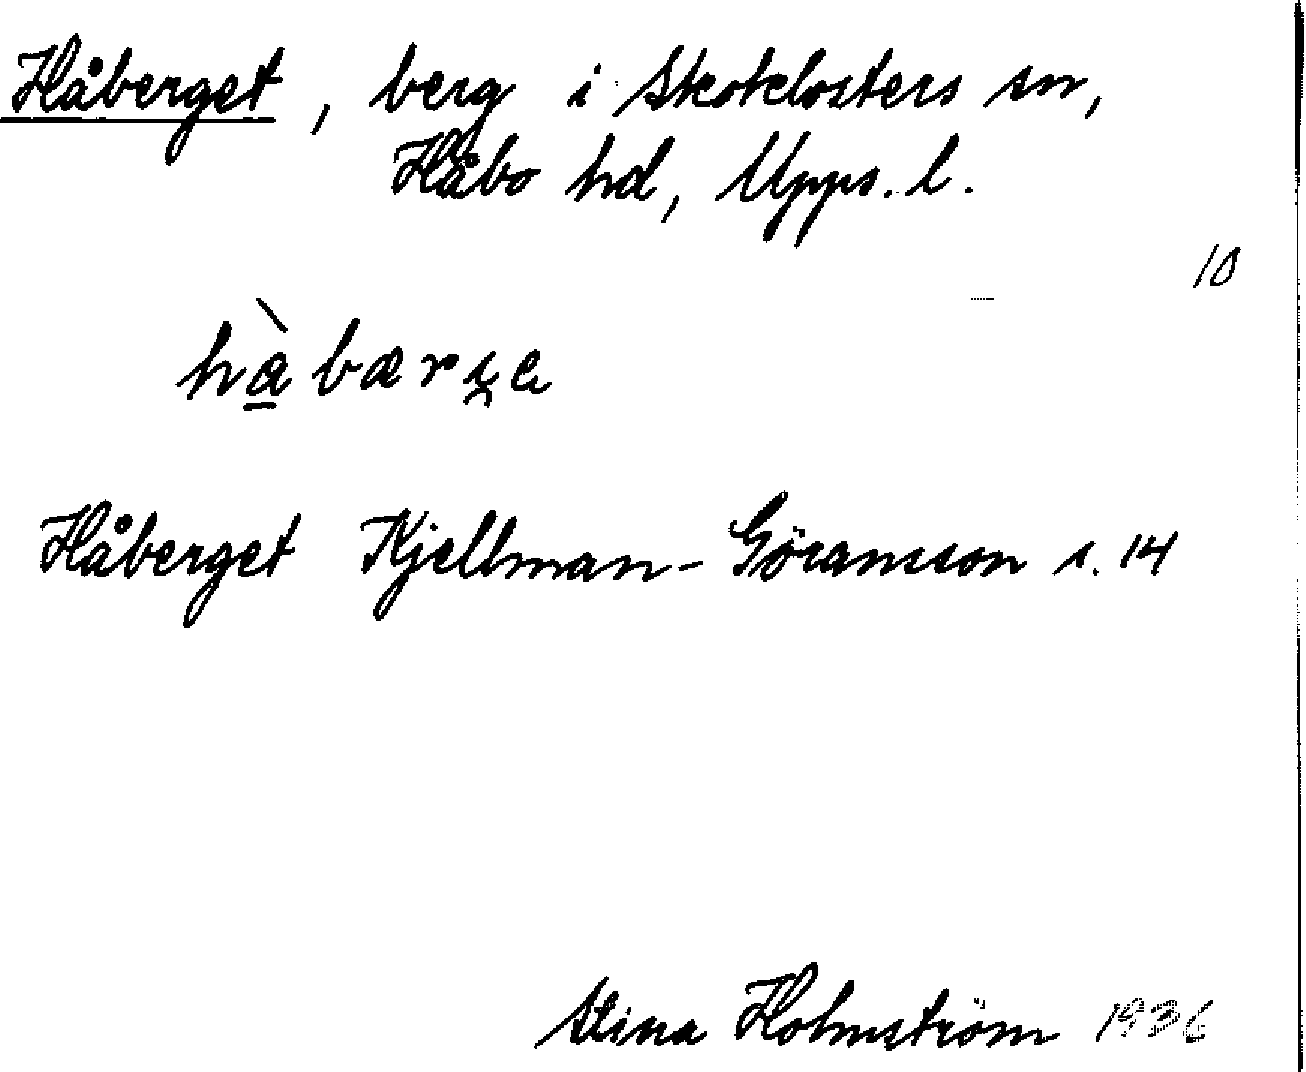 Håberget, berg i Skoklosters sn,
Håbo hd, Upps. l.
10
hàbærȷe
Håberget Kjellman-Göransson s. 14
Stina Holmström 1936